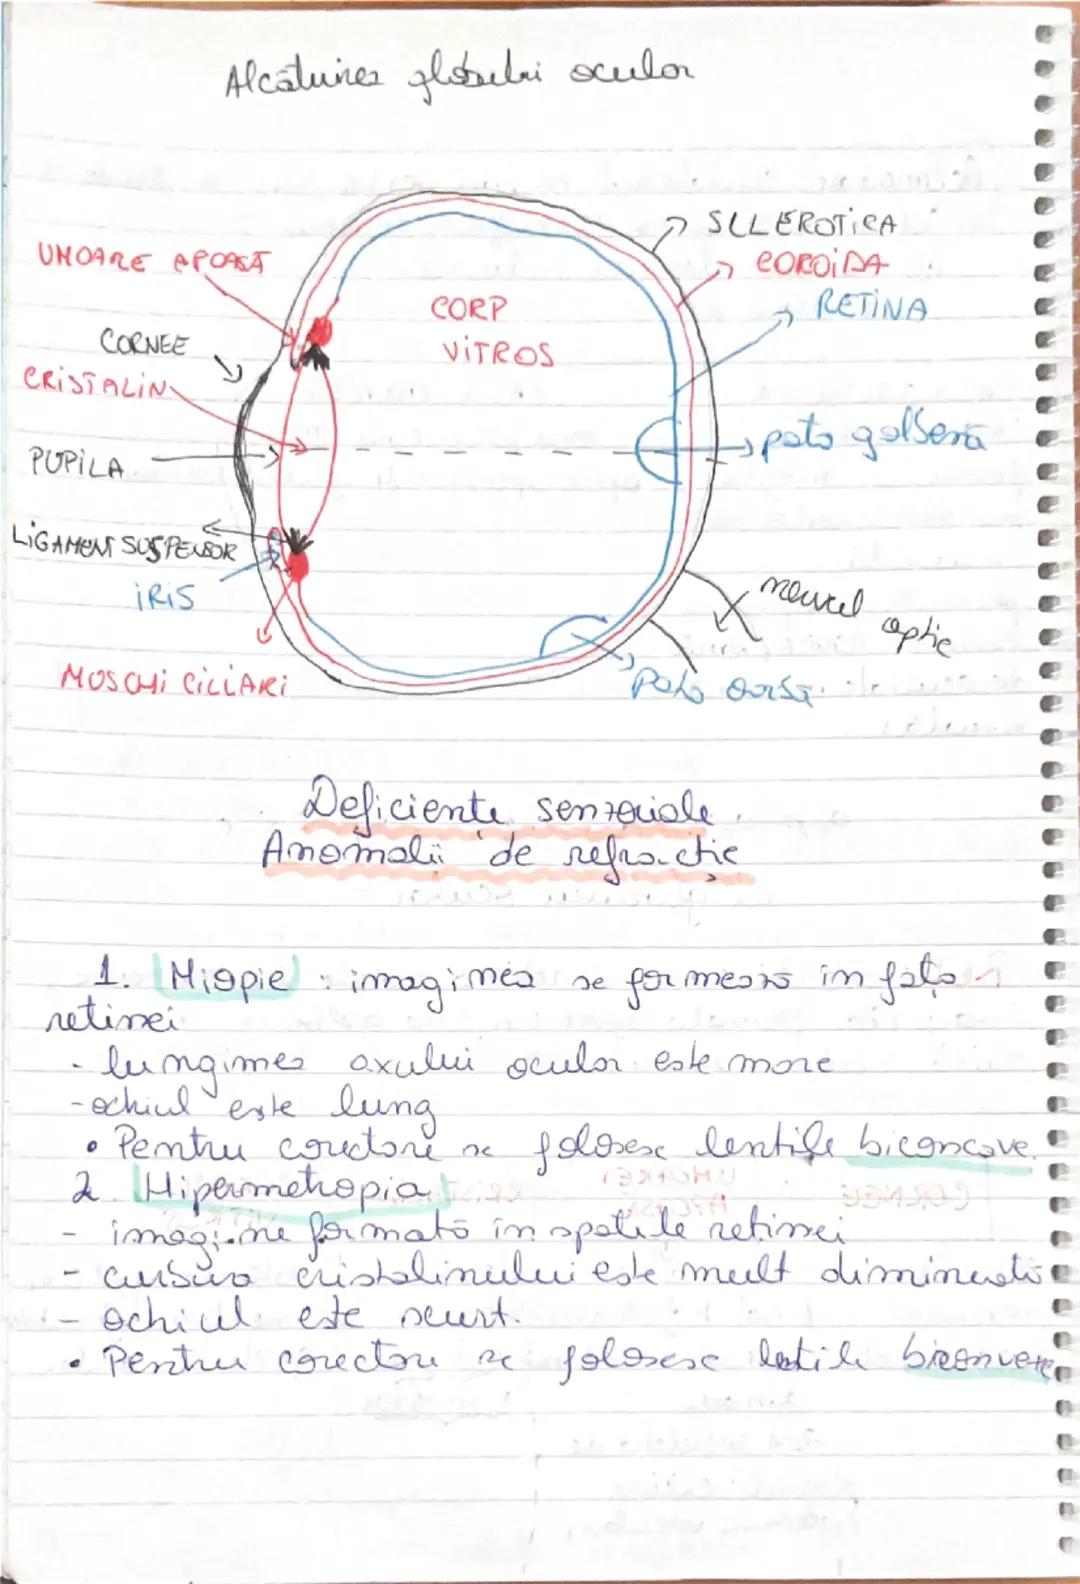 Alcătuirea globului ocular
UMOARE APOASĂ
CORNEE
CRISTALIN
PUPILA
LIGAMENT SUSPENSOR
IRIS
MUSCHI CILIARI
CORP
VITROS
SCLEROTICA
COROIDA
RETINA
pata galbenă
nervul
optic
Pata oarbă
Deficiente senzoriale
Anomalii de refracție
1. Miopie : imaginea se formează in fața
retinei
- lungimea axului ocular este mare
- ochiul este lung
• Pentru corectare se folosesc lentile biconcave.
2. Hipermetropia
- imagine formată in spatele retinei
- curbura cristalinului este mult diminuată
- ochiul este scurt.
• Pentru corectare se folosesc letile biconvexe